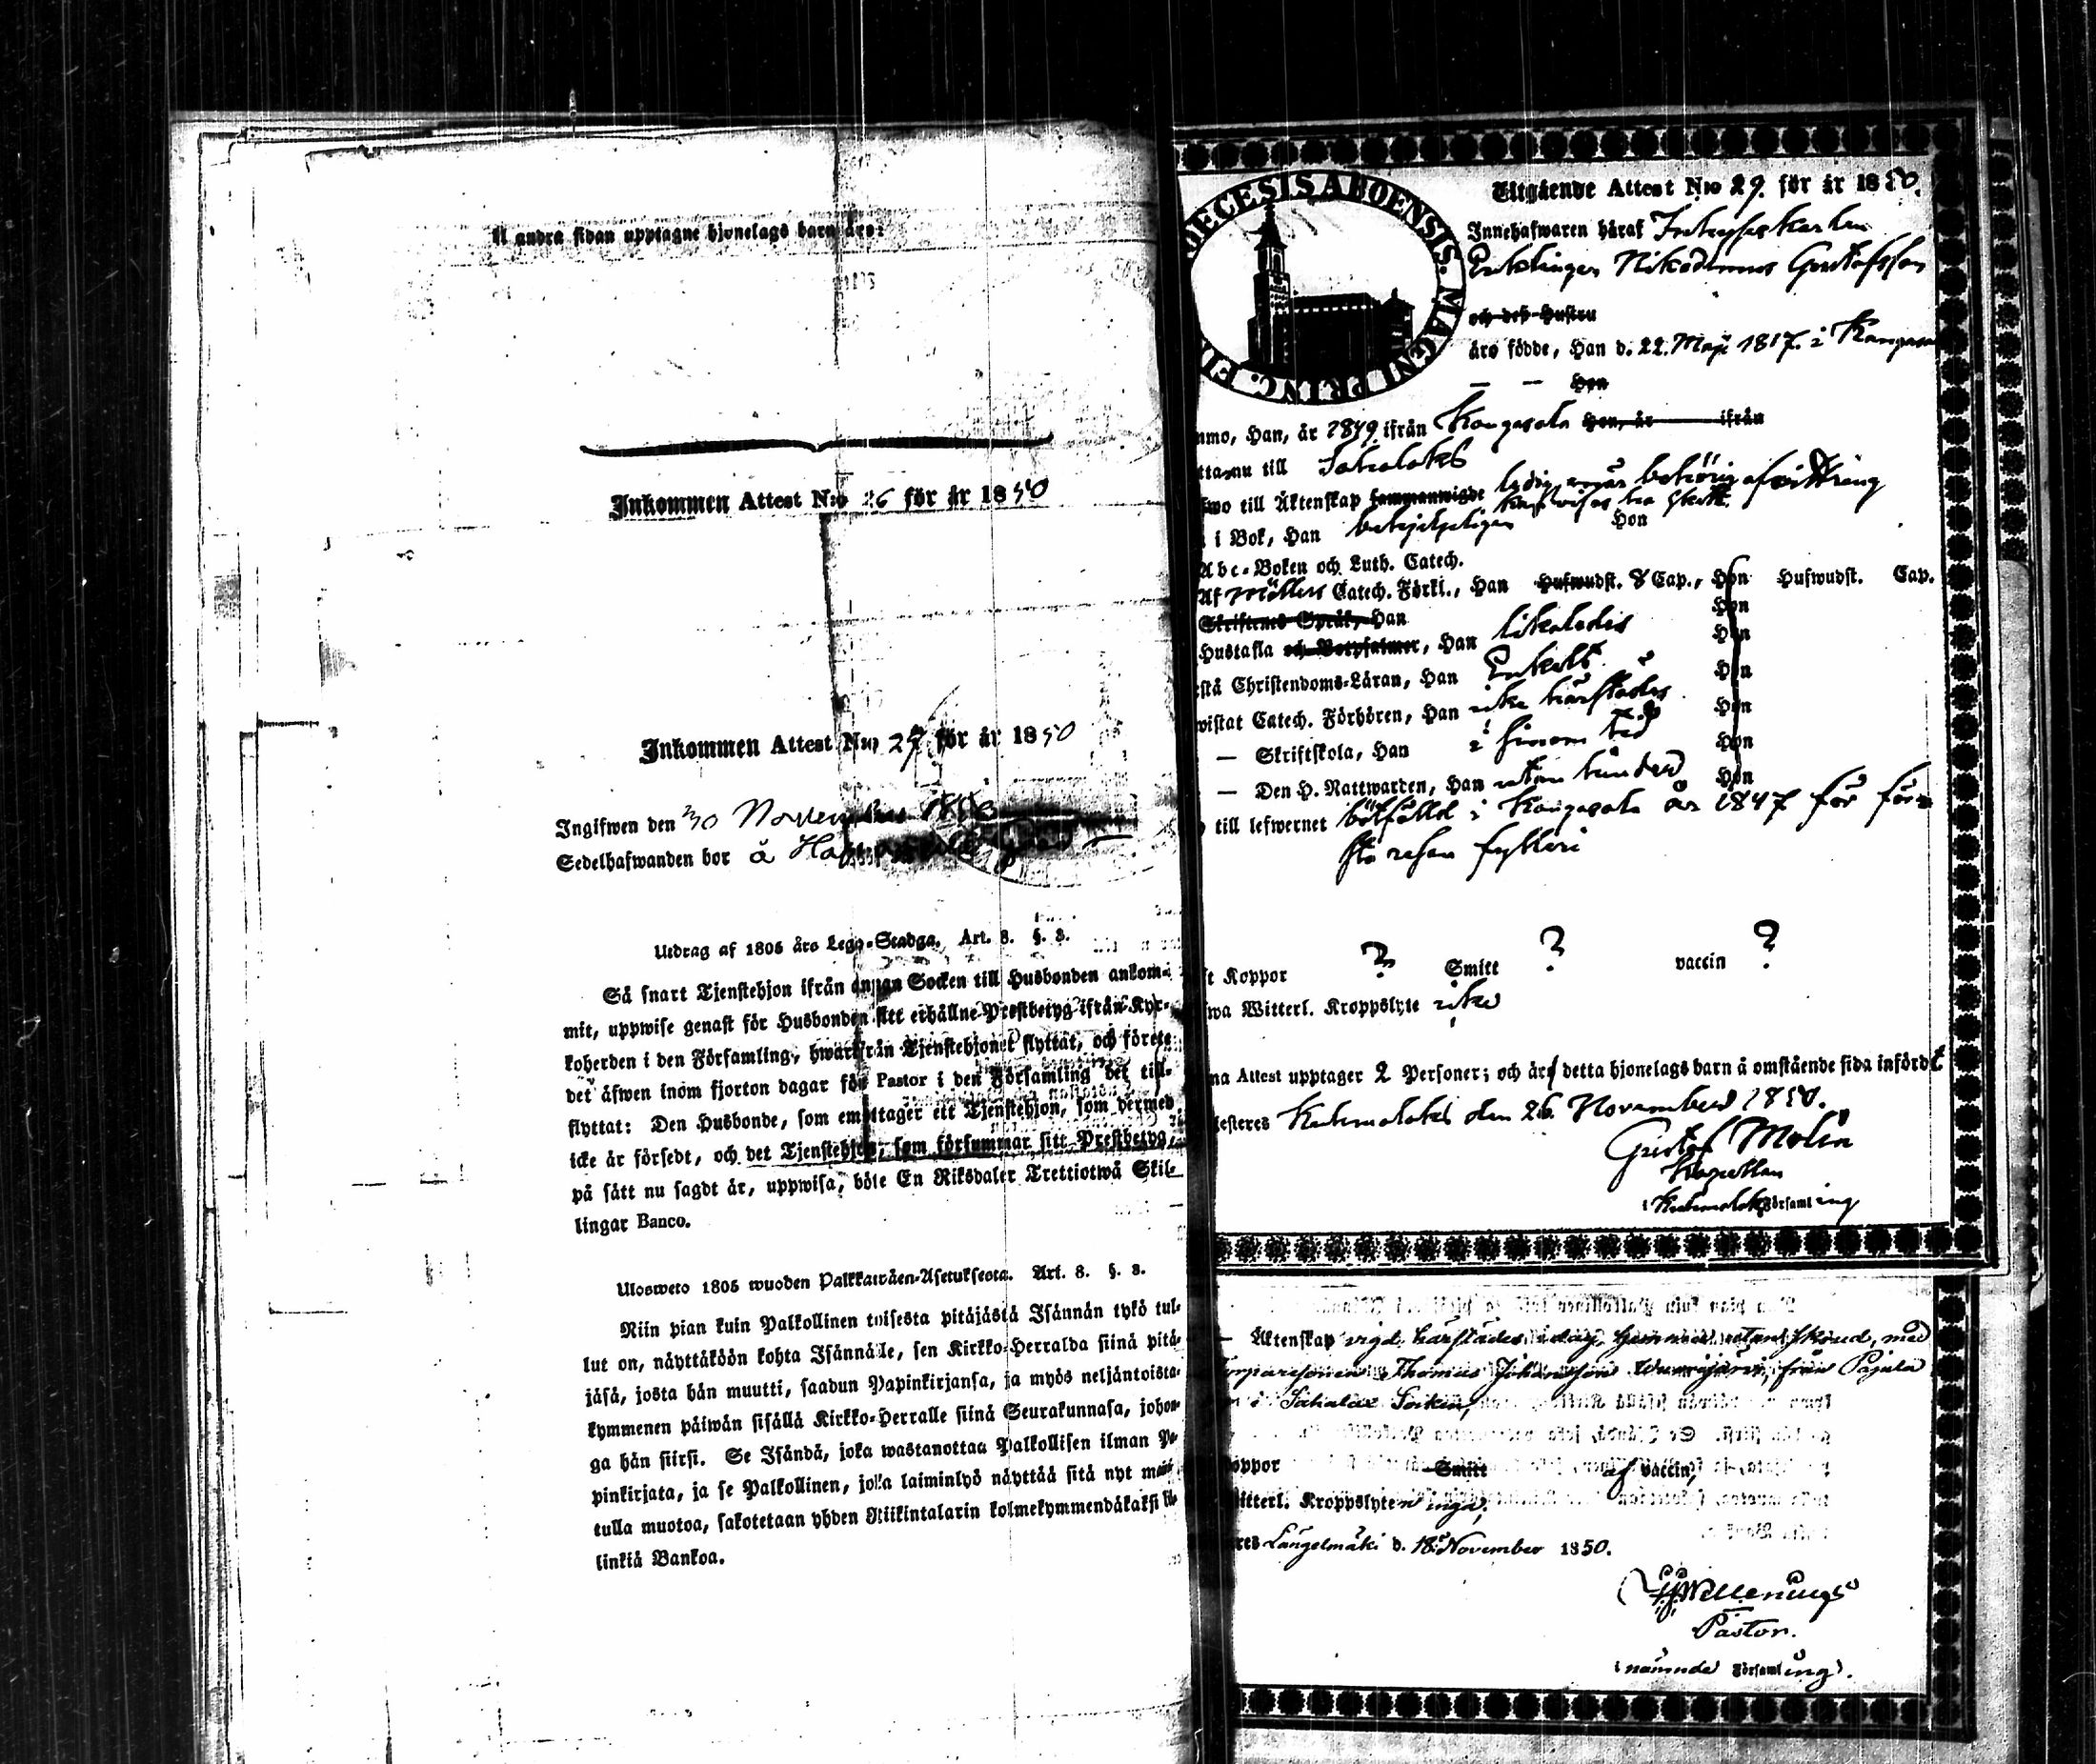 å andra sidan upptagne hjonelags barn äro:
Inkommen Attest N:o 26 för år 1850
Inkommen Attest N:o 27 för år 1850
Ingifwen den 30 November 1850
Sedelhafwanden bor å
Utdrag af 1805 års Lego-Stadga. Art. 8. §. 3.
Så snart Tjenstehjon ifrån annan Socken till Husbonden ankom-
mit, uppwise genast för Husbonden sitt erhållne Prestbetyg ifrån Kyr-
koherden i den Församling, hwarifrån Tjenstehjonet flyttat, och förete
det äfwen inom fjorton dagar för Pastor i den Församling det till-
flyttat: Den Husbonde, som emottager ett Tjenstehjon, som dermed
icke är försedt, och det Tjenstehjon, som försummar sitt Prestbetyg,
på sätt nu sagdt är, uppwisa, böte En Riksdaler Trettiotwå Skil-
lingar Banco.
Ulosweto 1805 wuoden Palkkawäen-Asetuksesta. Art. 8. §. 3.
Niin pian kuin Palkollinen toisesta pitäjästä Isännän tykö tul-
lut on, näyttäköön kohta Isännälle, sen Kirkko-Herralda siinä pitä-
jäsä, josta hän muutti, saadun Papinkirjansa, ja myös neljäntoista-
kymmenen päiwän sisällä Kirkko-Herralle siinä Seurakunnasa, johon-
ga hän siirsi. Se Isändä, joka wastanottaa Palkollisen ilman Pa-
pinkirjata, ja se Palkollinen, jolka laiminlyö näyttää sitä nyt mai-
tulla muotoa, sakotetaan yhden Riikintalarin kolmekymmendäkaksi kil-
linkiä Bankoa.
DIŒCESIS ABOENSIS. MAGNI PRINC. FI
Utgående Attest N:o 29. för år 1850.
Innehafwaren häraf
Enklingen Nikodemus Gustafsson
och deß Hustru
äro födde, Han d. 22. Maji 1817. i Kangasa
— — Hon
mmo, Han, år 1849. ifrån Kangasala Hon, år ifrån
tta nu till Sahalaks
fwo till Äktenskap sammanwigde ledig, när behörig afwittring
i Bok, Han behjelpeligen Hon
Abc-Boken och Luth. Catech.
Af Möllers Catech. Förkl., Han Hufwudst. 8 Cap., Hon Hufwudst. Cap.
Skriftenes Språk, Han Hon
Hustafla och Botpsalmer, Han likaledes Hon
stå Christendoms-Läran, Han Enkelt Hon
wistat Catech. Förhören, Han icke härstädes Hon
— Skriftskola, Han i sinom tid Hon
— Den H. Nattwarden, Han utan hinder Hon
till lefwernet bötfälld i Kangasala år 1847 för för-
sta resan fylleri
t Koppor ? Smitt ? vaccin ?
wa Witterl. Kroppslyte icke
na Attest upptager 2 Personer; och äro detta hjonelags barn å omstående sida infördt
esteres Kuhmalaks den 26 November 1850.
Gustaf Molin
Kapellan
i Kuhmalaks Församling
— Äktenskap vigd härstädes idag, hemma utan skrud, med
Thomas Johansson från Pajula
i Sahalax Socken,
oppor Smitt af vaccin,
itterl. Kroppslyten inga;
res Längelmäki d. 18 November 1850.
Pastor.
i nämnde Församling.